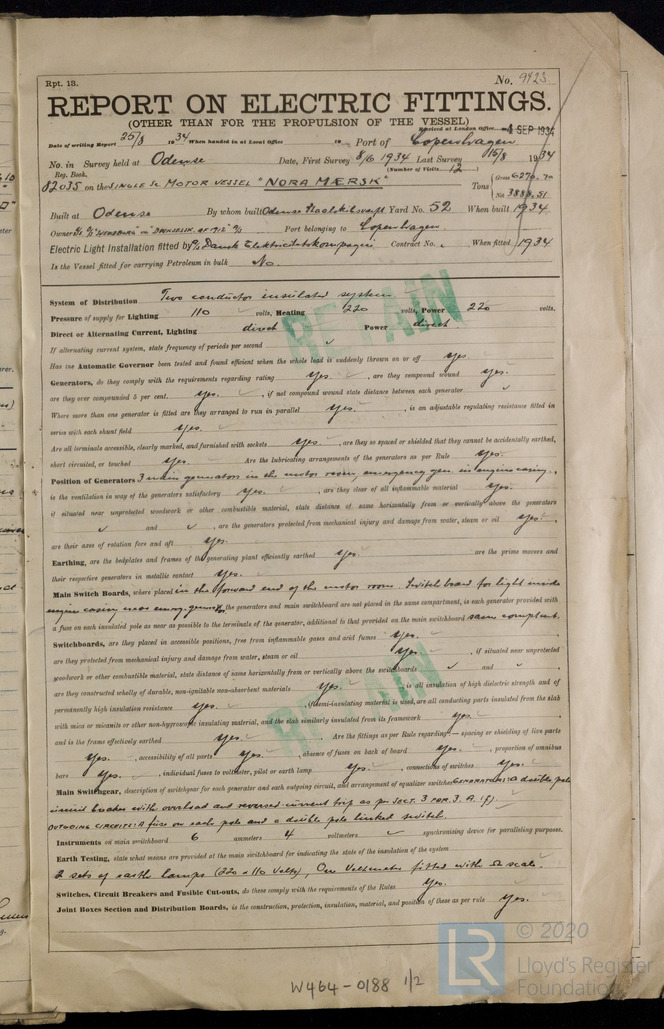 Rpt. 13.
No. 9423.
REPORT ON ELECTRIC FITTINGS.
(OTHER THAN FOR THE PROPULSION OF THE VESSEL)
Received at London Office 4 SEP 1934
Date of writing Report 25/8 1934 When handed in at Local Office 19 Port of Copenhagen
No. in Survey held at Odense Date, First Survey 8/6 1934 Last Survey 1934
Reg. Book. (Number of Visits 12)
82035 on the SINGLE Sc. MOTOR VESSEL "NORA MÆRSK" Tons Gross 6270.70 Net 3888.51
Built at Odense By whom built Odense Staalskibsvaerft Yard No. 52 When built 1934
Owners Port belonging to Copenhagen
Electric Light Installation fitted by Dansk Elektricitetskompagni Contract No. When fitted 1934
Is the Vessel fitted for carrying Petroleum in bulk No
System of Distribution Two conductor insulated system
Pressure of supply for Lighting 110 volts, Heating 220 volts, Power 220 volts.
Direct or Alternating Current, Lighting direct Power direct
If alternating current system, state frequency of periods per second
Has the Automatic Governor been tested and found efficient when the whole load is suddenly thrown on or off yes.
Generators, do they comply with the requirements regarding rating yes. , are they compound wound yes.
are they over compounded 5 per cent. yes. , if not compound wound state distance between each generator
Where more than one generator is fitted are they arranged to run in parallel yes. , is an adjustable regulating resistance fitted in
series with each shunt field yes.
Are all terminals accessible, clearly marked, and furnished with sockets yes. , are they so spaced or shielded that they cannot be accidentally earthed,
short circuited, or touched yes. Are the lubricating arrangements of the generators as per Rule yes.
Position of Generators 3 main generators in the motor room, emergency gen. in engine casing.
is the ventilation in way of the generators satisfactory yes. , are they clear of all inflammable material yes.
if situated near unprotected woodwork or other combustible material, state distance of same horizontally from or vertically above the generators
and , are the generators protected from mechanical injury and damage from water, steam or oil yes.
are their axes of rotation fore and aft yes.
Earthing, are the bedplates and frames of the generating plant efficiently earthed yes. are the prime movers and
their respective generators in metallic contact yes.
Main Switch Boards, where placed in the forward end of the motor room. Switchboard for light inside
engine casing near emerg. generator. the generators and main switchboard are not placed in the same compartment, is each generator provided with
a fuse on each insulated pole as near as possible to the terminals of the generator, additional to that provided on the main switchboard same compartment.
Switchboards, are they placed in accessible positions, free from inflammable gases and acid fumes yes.
are they protected from mechanical injury and damage from water, steam or oil yes. , if situated near unprotected
woodwork or other combustible material, state distance of same horizontally from or vertically above the switchboards and
are they constructed wholly of durable, non-ignitable non-absorbent materials yes. is all insulation of high dielectric strength and of
permanently high insulation resistance yes. , if semi-insulating material is used, are all conducting parts insulated from the slab
with mica or micanite or other non-hygroscopic insulating material, and the slab similarly insulated from its framework yes.
and is the frame effectively earthed yes. Are the fittings as per Rule regarding:— spacing or shielding of live parts
yes. , accessibility of all parts yes. , absence of fuses on back of board yes. , proportion of omnibus
bars yes. , individual fuses to voltmeter, pilot or earth lamp yes. , connections of switches yes.
Main Switchgear, description of switchgear for each generator and each outgoing circuit, and arrangement of equalizer switches GENERATORS: A double pole
circuit breaker with overload and reversed current trip as per SECT. 3 PAR. 3. A. (f).
OUTGOING CIRCUITS: A fuse on each pole and a double pole linked switch.
Instruments on main switchboard 6 ammeters 4 voltmeters synchronising device for paralleling purposes.
Earth Testing, state what means are provided at the main switchboard for indicating the state of the insulation of the system
2 sets of earth lamps (220 & 110 volts), One Voltmeter fitted with Ω scale.
Switches, Circuit Breakers and Fusible Cut-outs, do these comply with the requirements of the Rules Yes.
Joint Boxes Section and Distribution Boards, is the construction, protection, insulation, material, and position of these as per rule yes.
RETAIN
RETAIN
W464-0188 1/2
© 2020
LR
Lloyd's Register
Foundation